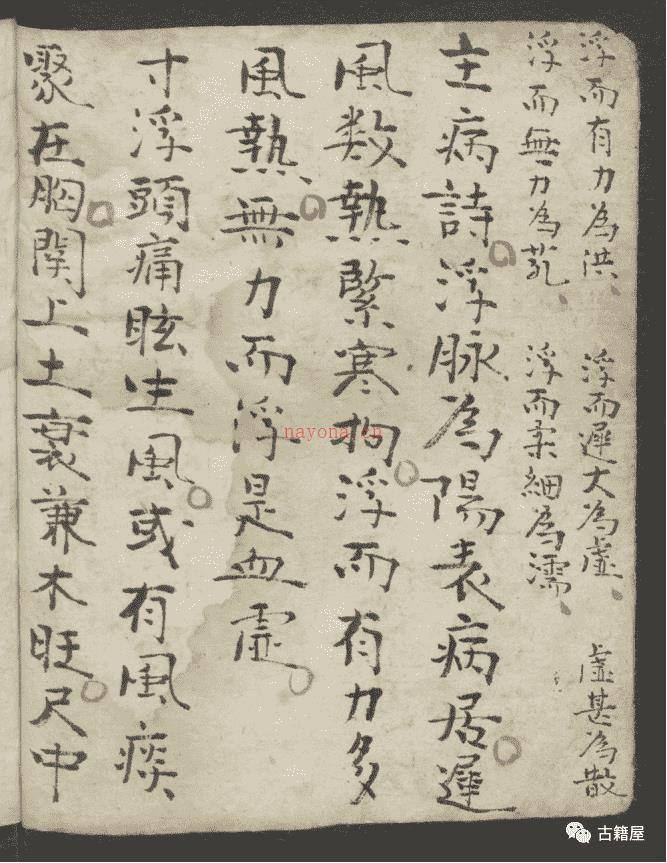 浮而有力為洪、浮而遲大為虛、虛甚為散
浮而無力為芤、浮而柔細為濡、
主病詩。浮脉為陽表病居。遲
風数熱緊寒拘。浮而有力多
風熱。無力而浮是血虛。
寸浮頭痛眩生風。或有風痰
聚在胸。関上土衰兼木旺。尺中
nayona.cn
古籍屋